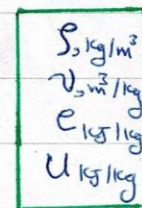 ρ, kg/m³
ν, m³/kg
e kJ/kg
u kJ/kg